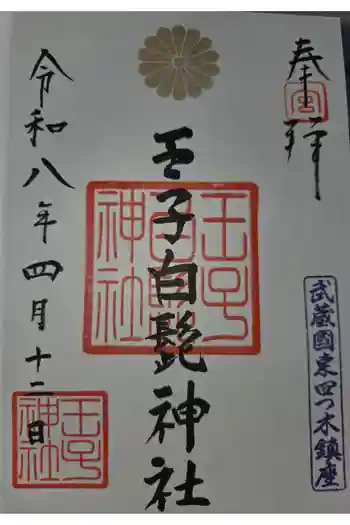 奉拝
宮
武蔵國東四つ木鎮座
王子白髭神社
王子
白髭
神社
令和八年四月十二日
王子
神社